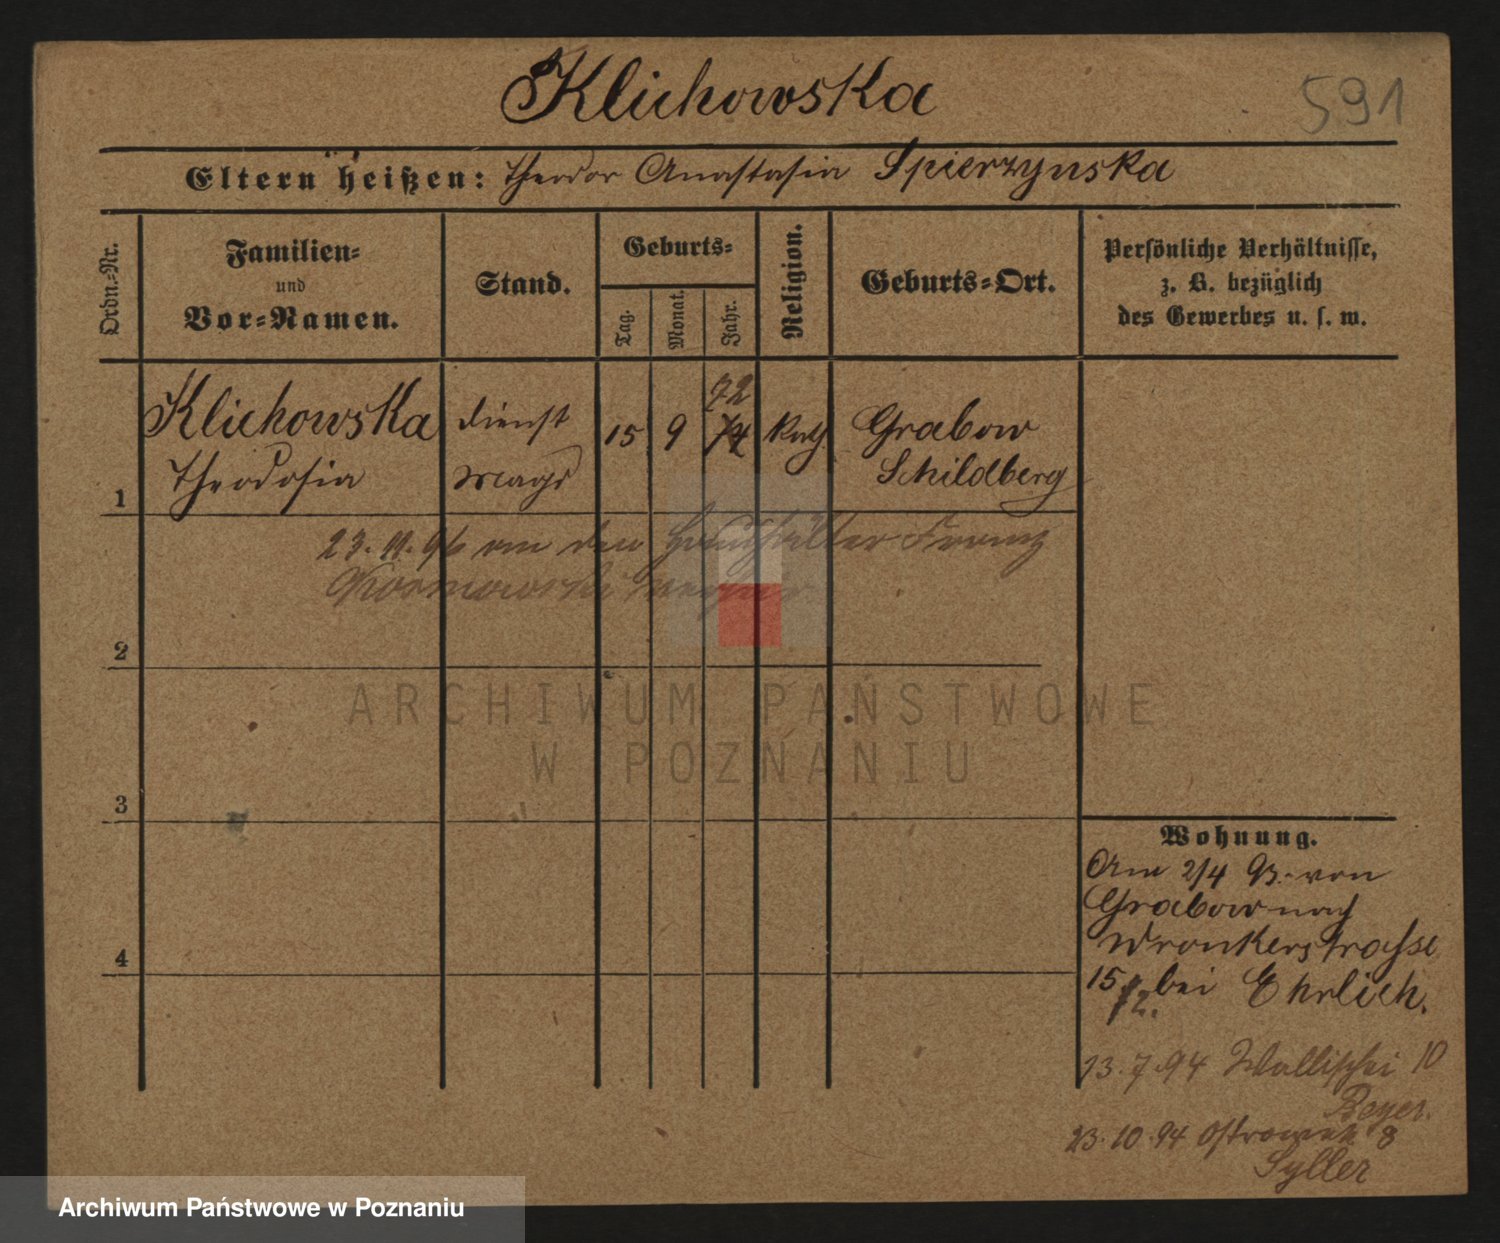 Klichowska
591
Eltern heißen: Theodor Anastasia Spierzynska
Ordn.-Nr.
Familien-
und
Vor-Namen.
Stand.
Geburts-
Tag.
Monat.
Jahr.
Religion.
Geburts-Ort.
Persönliche Verhältnisse,
z. B. bezüglich
des Gewerbes u. s. w.
72
Klichowska dienst 15 9 74 Kath Grabow
1 Theodosia Magd Schildberg
23. 11. 96 an den Haushälter Franz
2
ARCHIWUM PAŃSTWOWE
W POZNANIU
3
4
Wohnung.
Am 2/4 93. von
Grabow nach
Wronkerstrasse
15 bei Ehrlich.
12.
13.7.94 Wallischei 10
Beyer.
23.10.94 Ostrowek 8
Syller
Archiwum Państwowe w Poznaniu